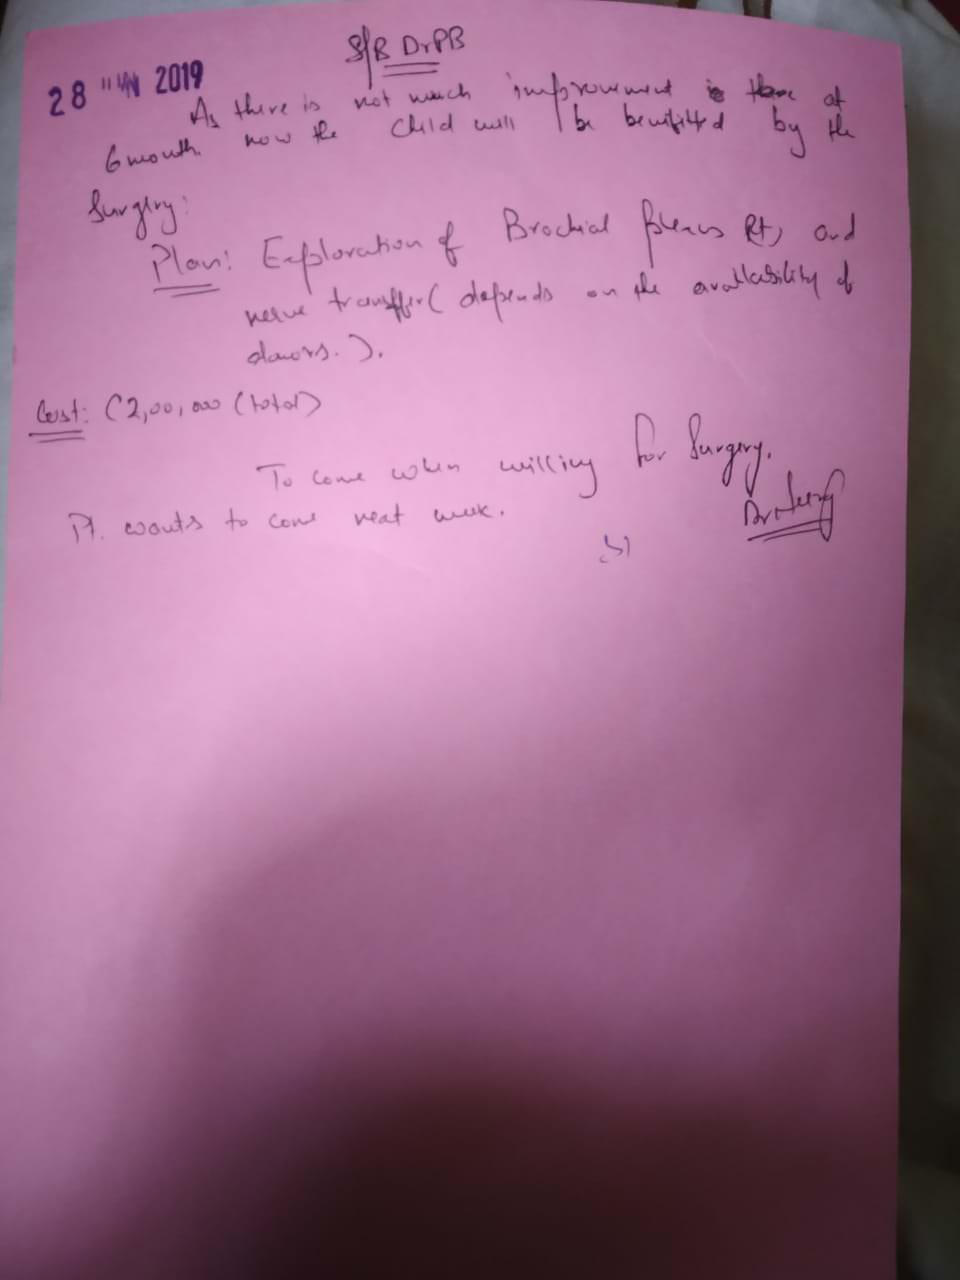 S/B Dr PB
28 JUN 2019
As there is not much improvement is there at
6 month. now the child will be benifitted by the
Surgery:
Plan: Exploration of Brachial plexus Rt, and
nerve transfer ( depends on the availability of
donors. ).
Cost: (2,00,000 (total)
To come when willing for Surgery.
Pt. wants to come next week.